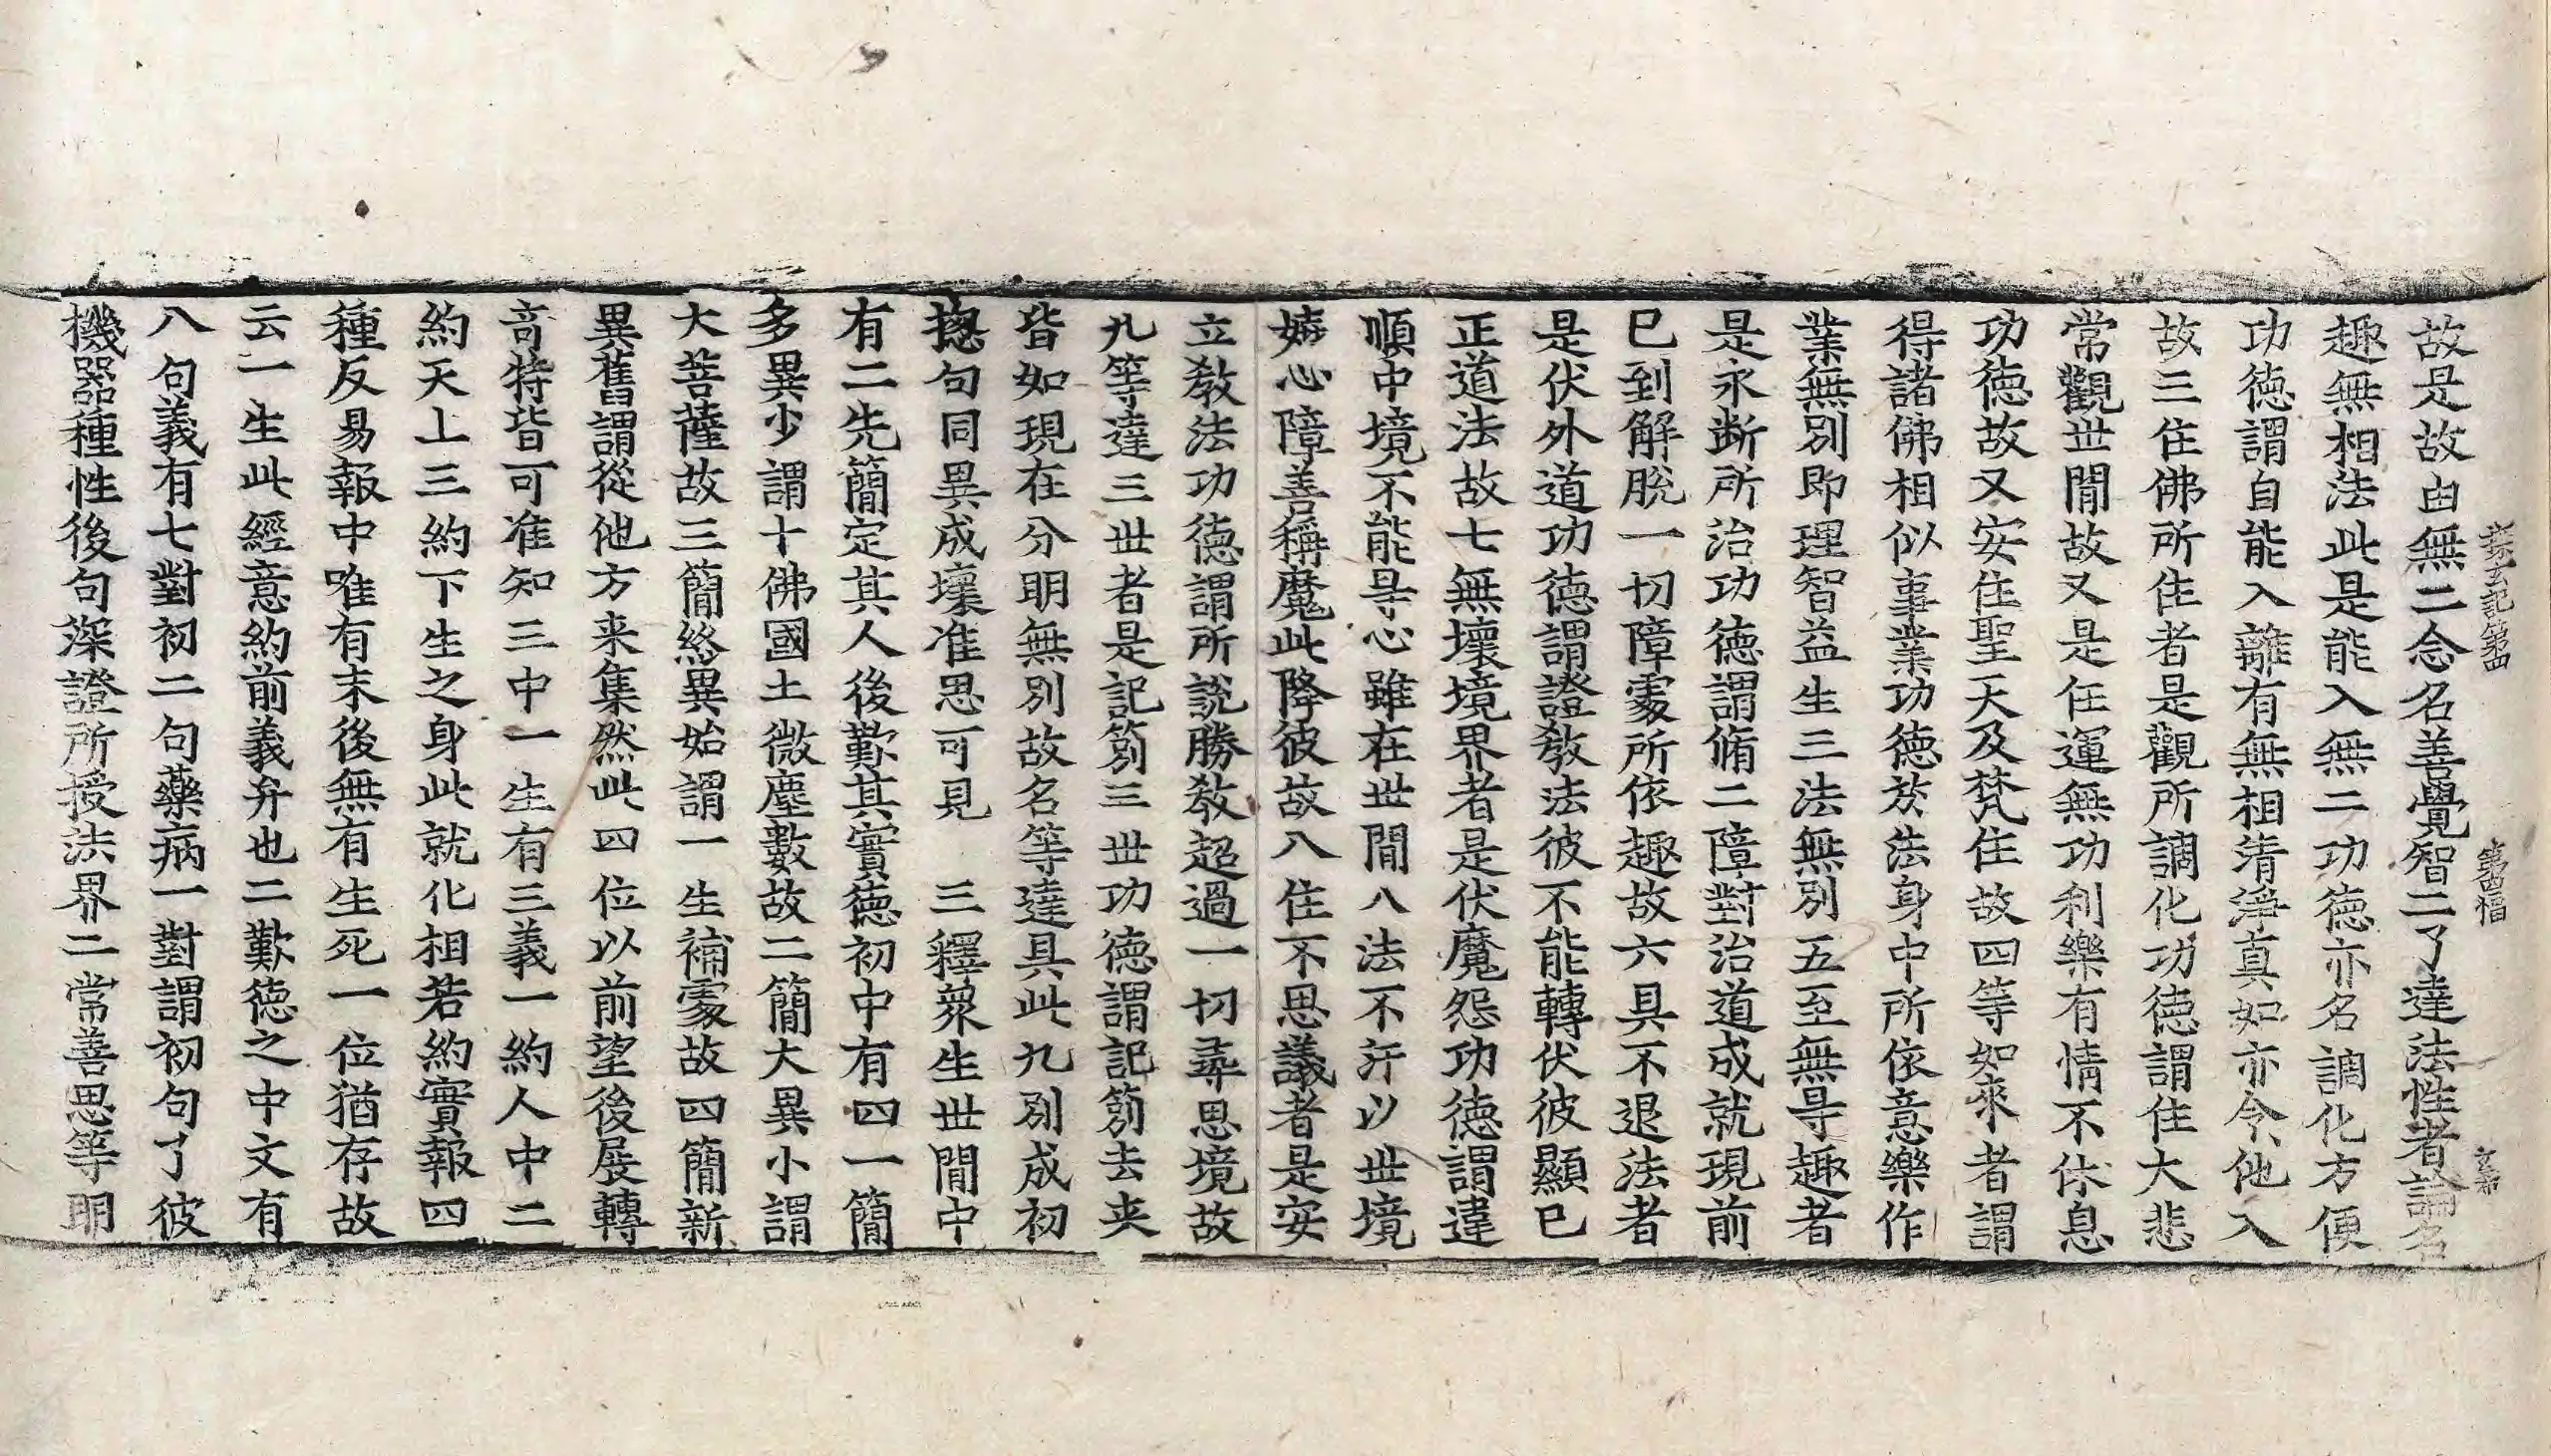 探玄記第四 第四楅
故是故由無二念名善覺智二了達法性者論名
趣無相法此是能入無二功德亦名調化方便
功德謂自能入離有無相清淨真如亦令他入
故三住佛所住者是觀所調化功德謂住大悲
常觀世間故又是任運無功利樂有情不休息
功德故又安住聖天及梵住故四等如來者謂
得諸佛相似事業功德於法身中所依意樂作
業無別即理智益生三法無別五至無㝵趣者
是永断所治功德謂脩二障對治道成就現前
已到解脫一切障處所依趣故六具不退法者
是伏外道功德謂證教法彼不能轉伏彼顯已
正道法故七無壞境界者是伏魔怨功德謂違
順中境不能㝵心雖在世間八法不汙以世境
嬈心障善稱魔此降彼故八住不思議者是安
立教法功德謂所說勝教超過一切尋思境故
九等達三世者是記莂三世功德謂記莂去来
皆如現在分明無別故名等達具此九別成初
揔句同異成壞准思可見 三釋衆生世間中
有二先簡定其人後歎其實德初中有四一簡
多異少謂十佛國土微塵數故二簡大異小謂
大菩薩故三簡終異始謂一生補處故四簡新
異舊謂從他方来集然此四位以前望後展轉
竒特皆可准知三中一生有三義一約人中二
約天上三約下生之身此就化相若約實報四
種反易報中唯有末後無有生死一位猶存故
云一生此經意約前義弁也二歎德之中文有
八句義有七對初二句藥病一對謂初句了彼
機器種性後句深證所授法界二常善思等明